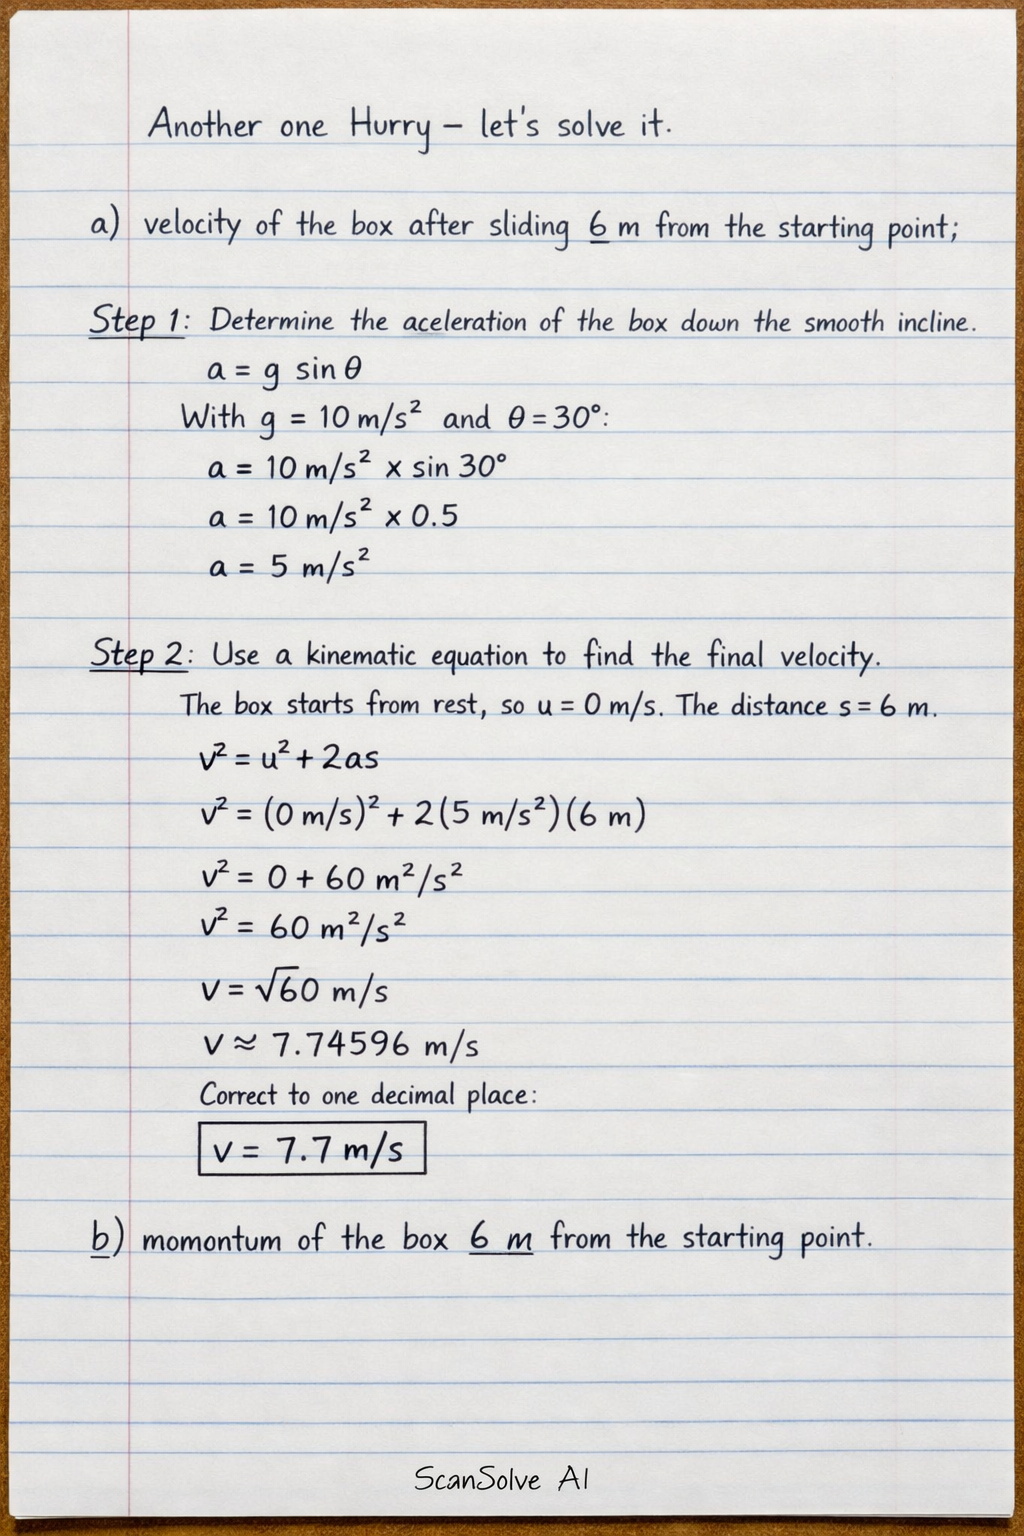 Another one Hurry – let's solve it.
a) velocity of the box after sliding 6 m from the starting point;
Step 1: Determine the aceleration of the box down the smooth incline.
a = g sin θ
With g = 10 m/s² and θ = 30°:
a = 10 m/s² x sin 30°
a = 10 m/s² x 0.5
a = 5 m/s²
Step 2: Use a kinematic equation to find the final velocity.
The box starts from rest, so u = 0 m/s. The distance s = 6 m.
v² = u² + 2as
v² = (0 m/s)² + 2(5 m/s²)(6 m)
v² = 0 + 60 m²/s²
v² = 60 m²/s²
v = √60 m/s
v ≈ 7.74596 m/s
Correct to one decimal place:
v = 7.7 m/s
b) momontum of the box 6 m from the starting point.
ScanSolve AI